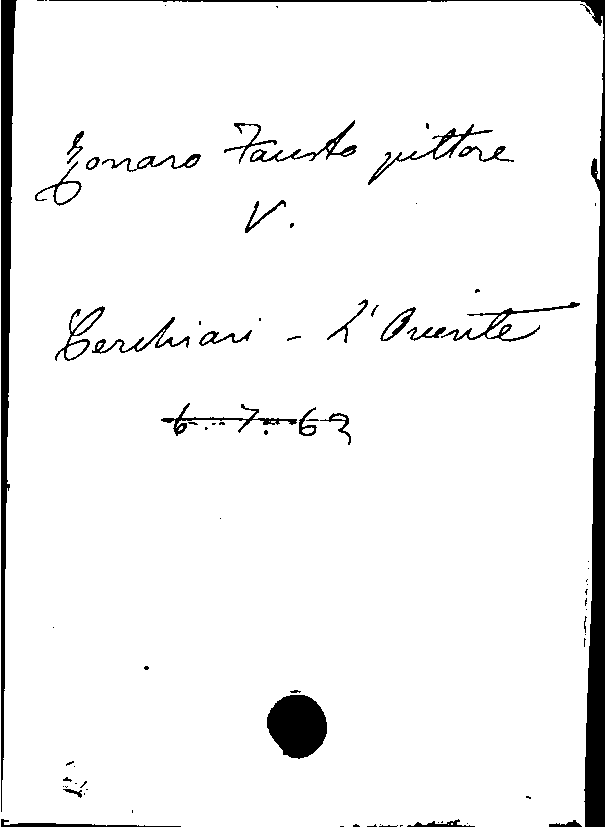 Zonaro Fausto pittore
V.
Cerchiari - L'Oriente
6.-7.-63